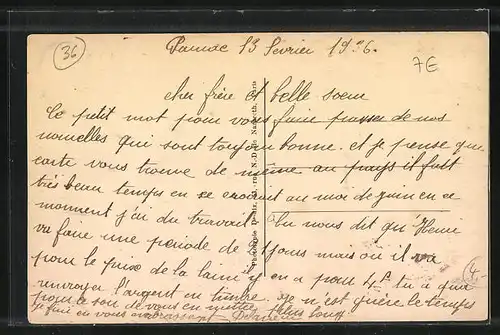 36
Paunac 13 fevrier 1926.
7€
cher frère et belle soeur
Ce petit mot pour vous faire passer de nos
nouvelles qui sont toujour bonne. et je pense que
carte vous trouve de même au pays il fait
très beau temps on se croirait au moi de juin en ce
moment j'ai du travail. tu nous dit qu'Henri
va faire une periode de jours mais où il va
pour le prix de la laine il y en a pour 4f tu a qu'a
envoyer l'argent en timbre. je n'est guère le temps
pour le son de vous en mettre plus long
je fini en vous embrassant